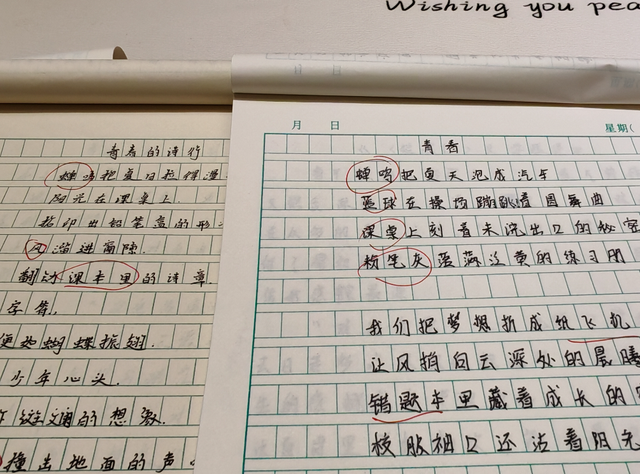 Wishing you pea
青春的诗行
蝉鸣把夏日拉得漫
阳光在课桌上
拓印出粉笔盒的形
风溜进窗隙
翻动课本里的诗章
字符
便如蝴蝶振翅
少年心头
斑斓的想象
撞出地面的声
月 日 星期(
青春
蝉鸣把夏天泡成汽车
篮球在操场蹦跳着圆舞曲
课桌上刻着未说出口的秘密
粉笔灰 落满泛黄的练习册
我们把梦想折成纸飞机
让风捎向云深处的晨曦
错题本里藏着成长的
校服袖口还沾着阳光